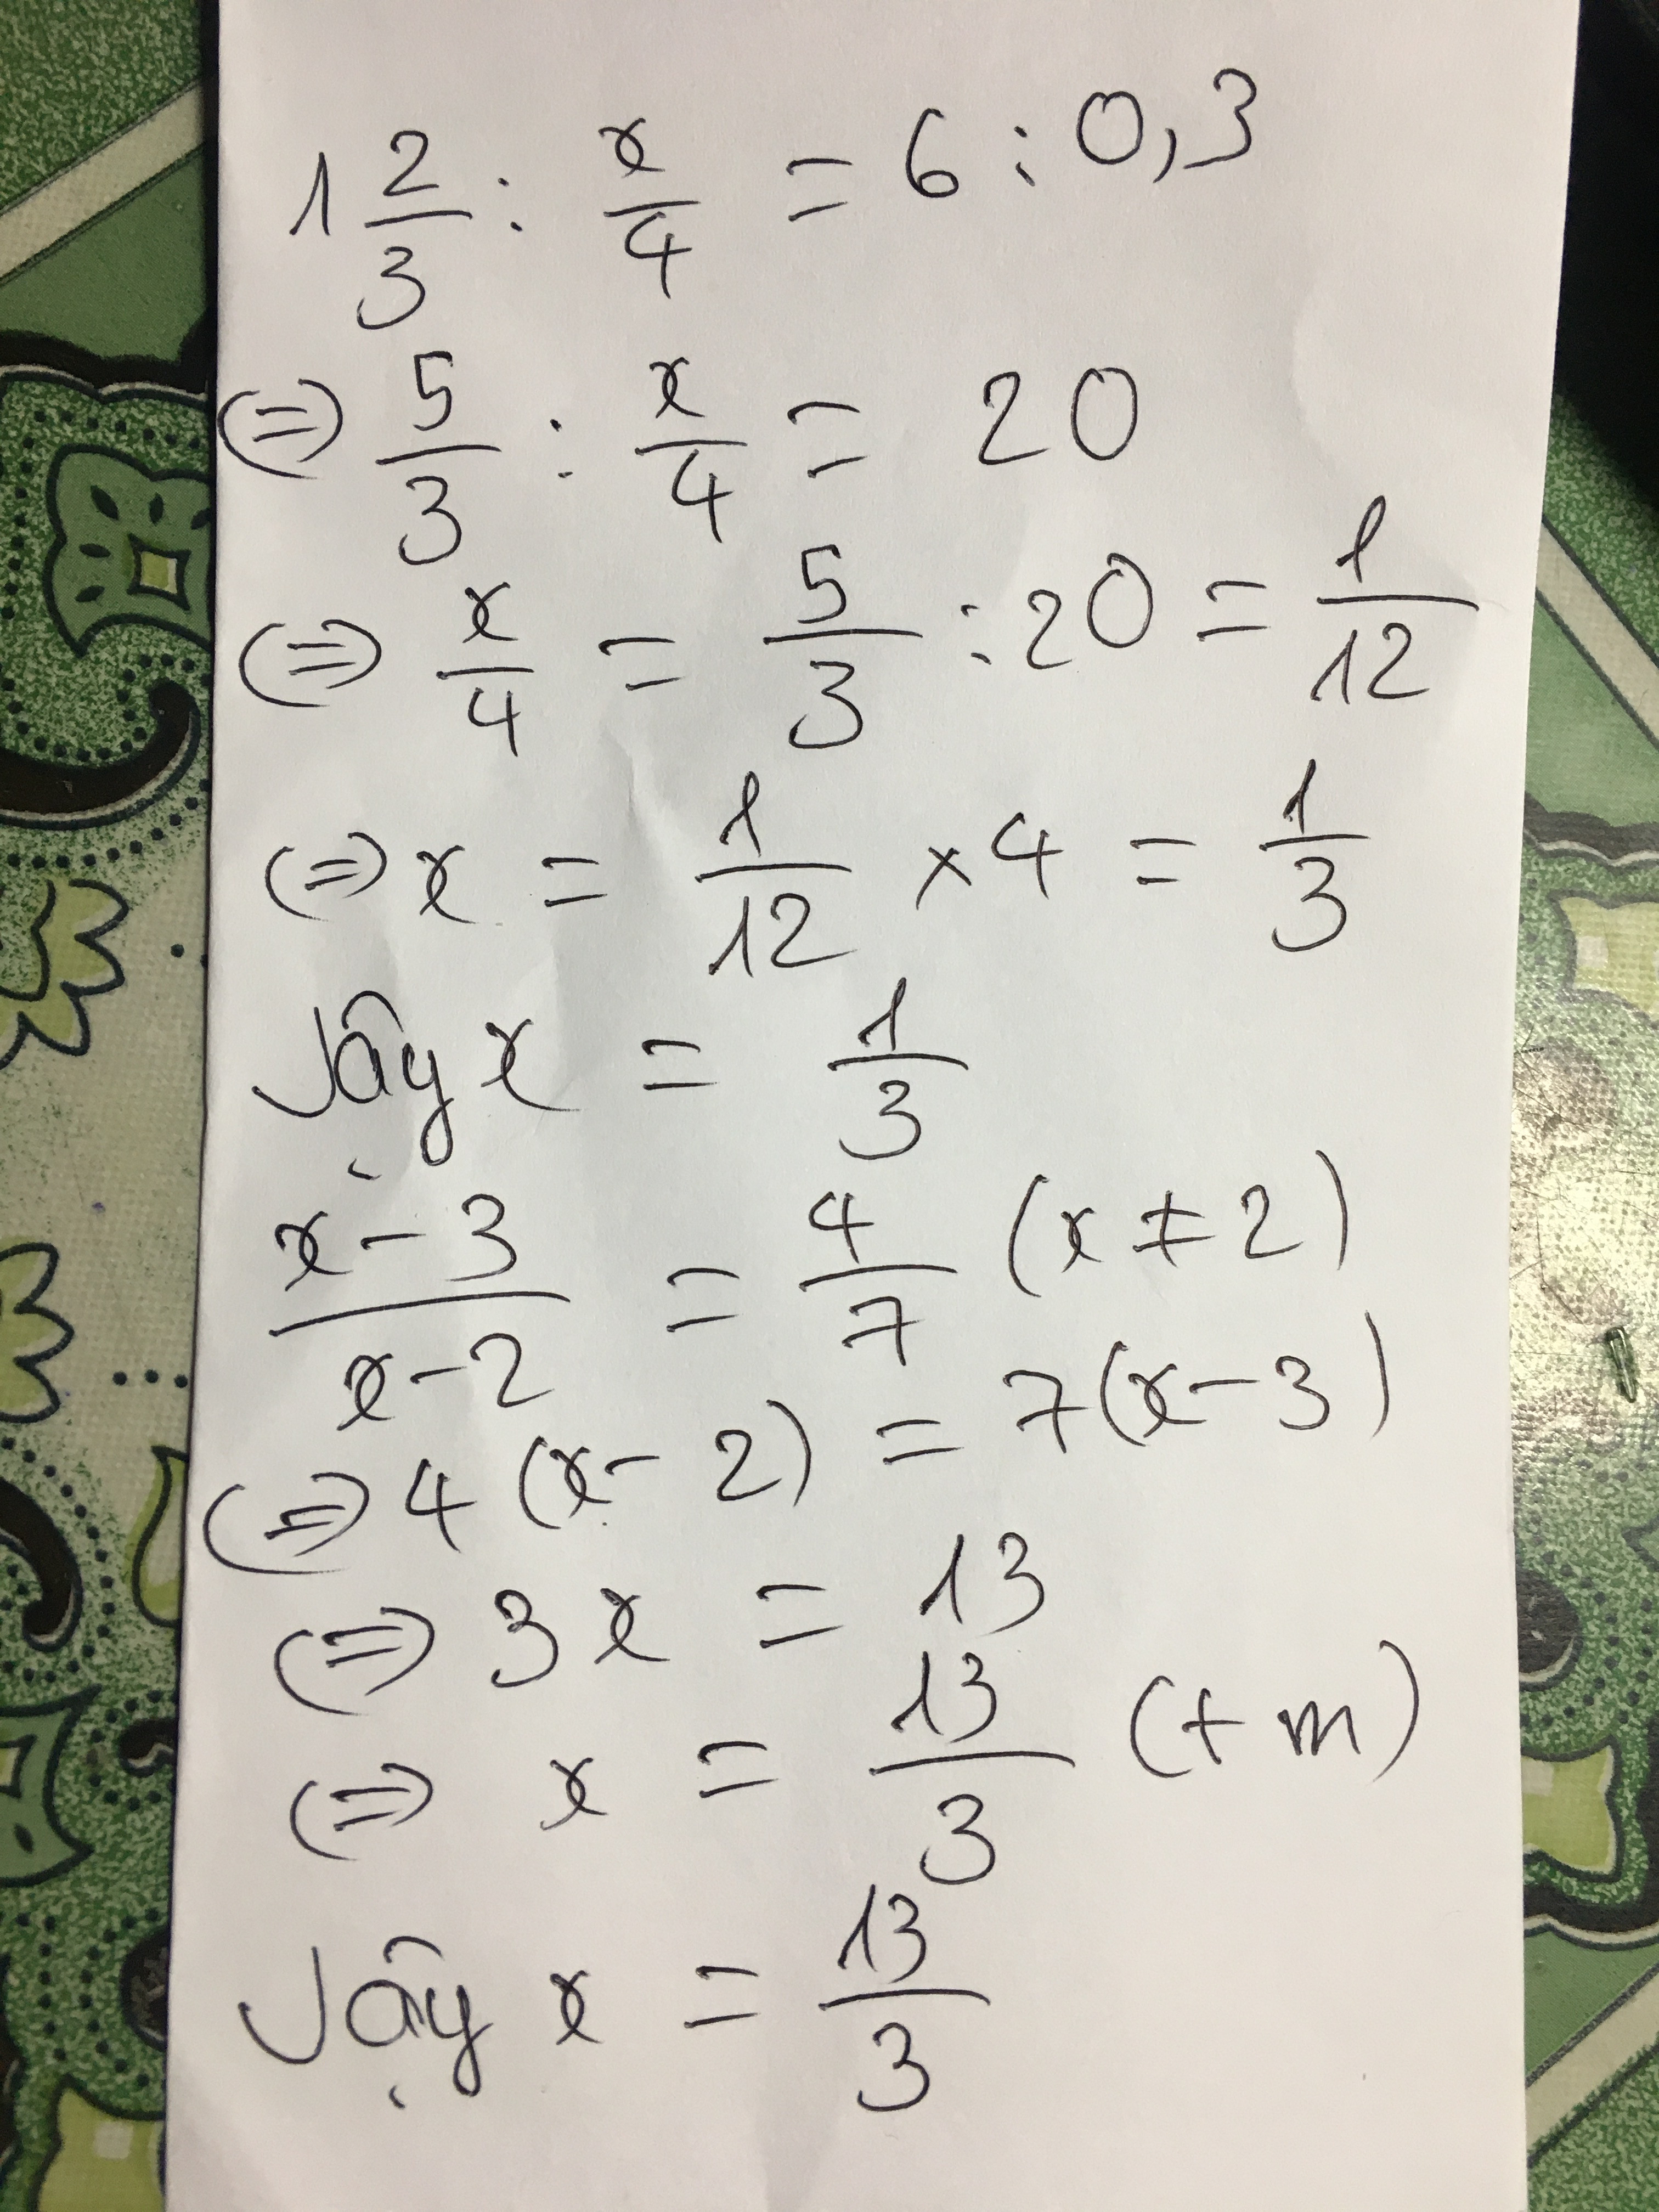 1 2/3 : x/4 = 6 : 0,3
(=) 5/3 : x/4 = 20
(=) x/4 = 5/3 : 20 = 1/12
(=) x = 1/12 × 4 = 1/3
Vậy x = 1/3
(x-3)/(x-2) = 4/7 (x ≠ 2)
(=) 4 (x - 2) = 7(x - 3)
(=) 3x = 13
(=) x = 13/3 (tm)
Vậy x = 13/3